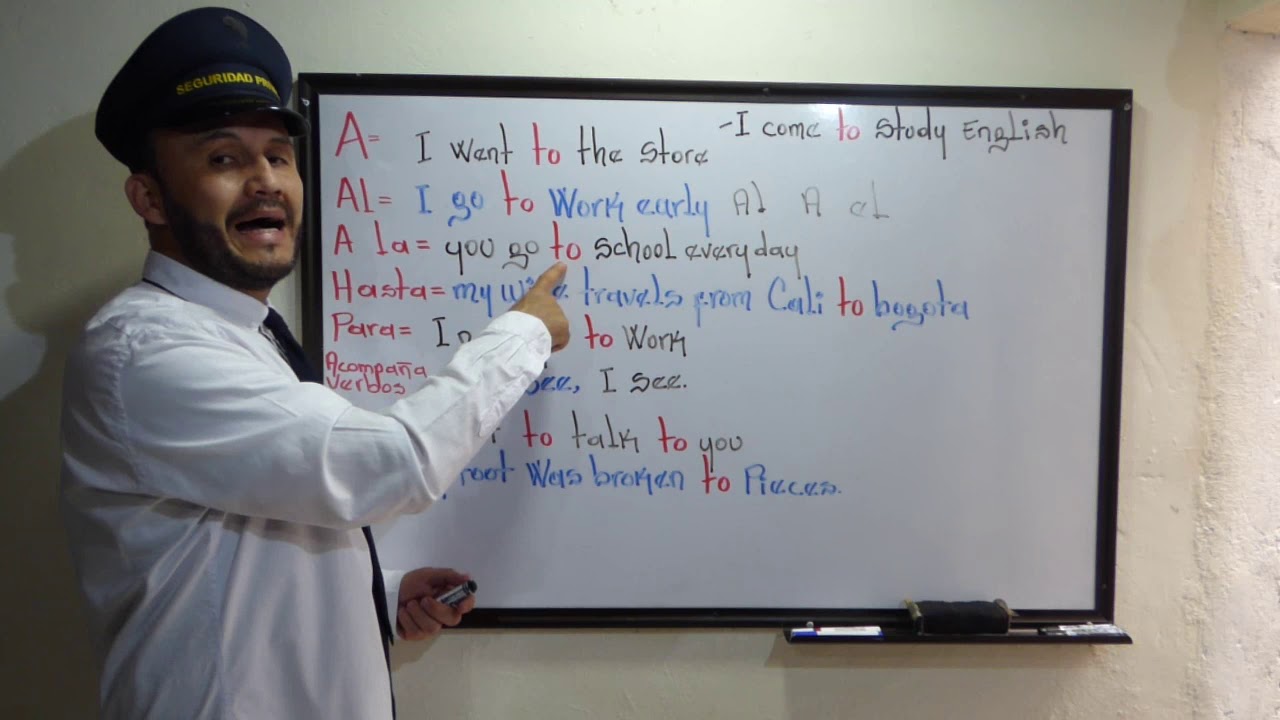 SEGURIDAD
A= I Want to the Store
-I come to Study English
Al= I go to Work early Al A el
A la= you go to School everyday
Hasta= my travels from Cali to bogota
Para= I to Work
Acompaña
Verbos
see, I See.
to talk to you
Was broken to Pieces.